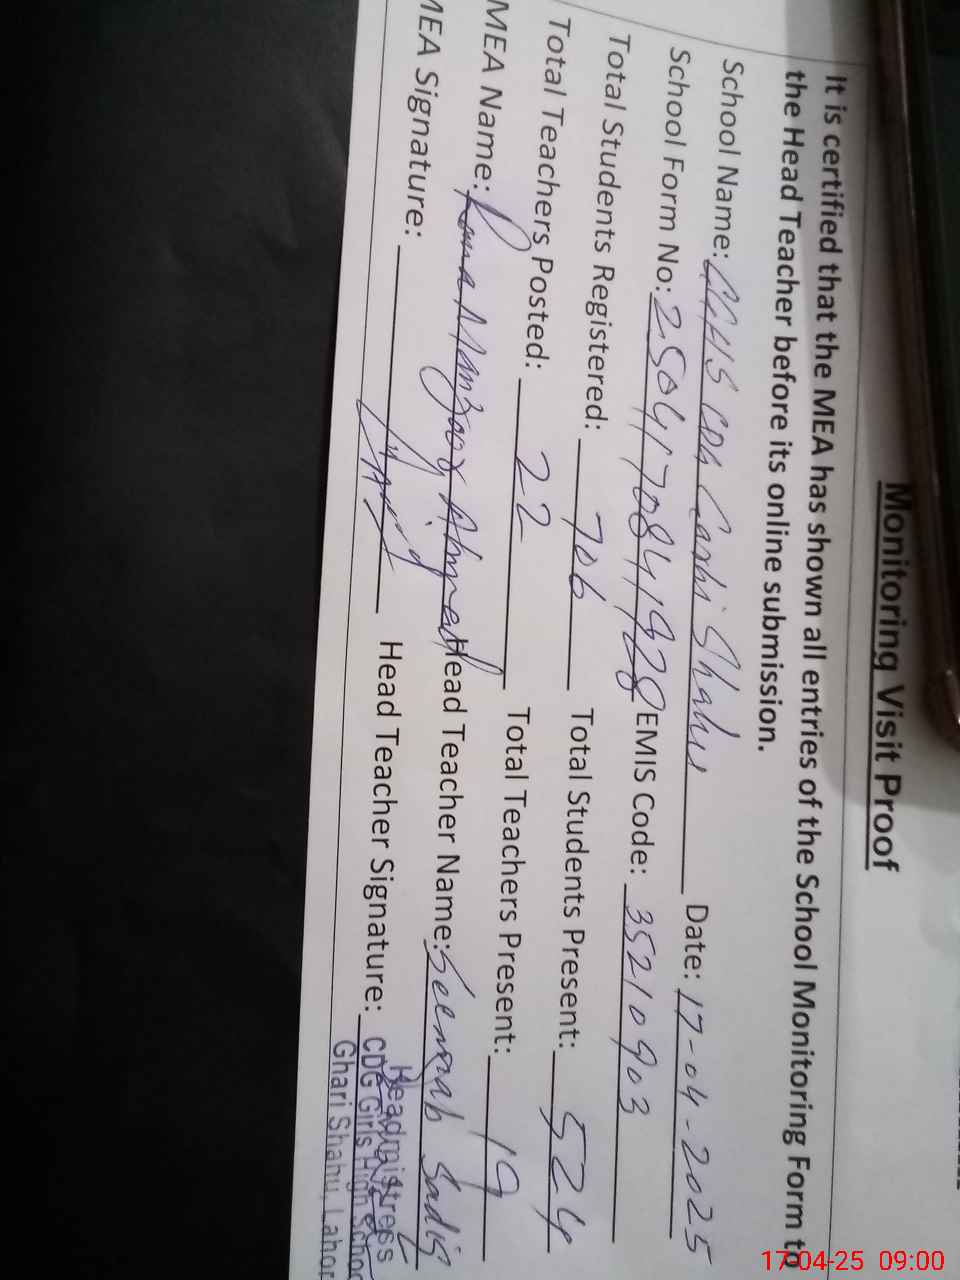 Monitoring Visit Proof
It is certified that the MEA has shown all entries of the School Monitoring Form to
the Head Teacher before its online submission.
School Name: GGHS CDG Garhi Shahu Date: 17-04-2025
School Form No: 2504170841928 EMIS Code: 35210903
Total Students Registered: 706 Total Students Present: 524
Total Teachers Posted: 22 Total Teachers Present: 19
MEA Name: Rana Manzoor Ahmed Head Teacher Name: Seemab Sadiq
MEA Signature: Head Teacher Signature:
Headmistress
CDG Girls High School
Ghari Shahu, Lahor
17-04-25 09:00